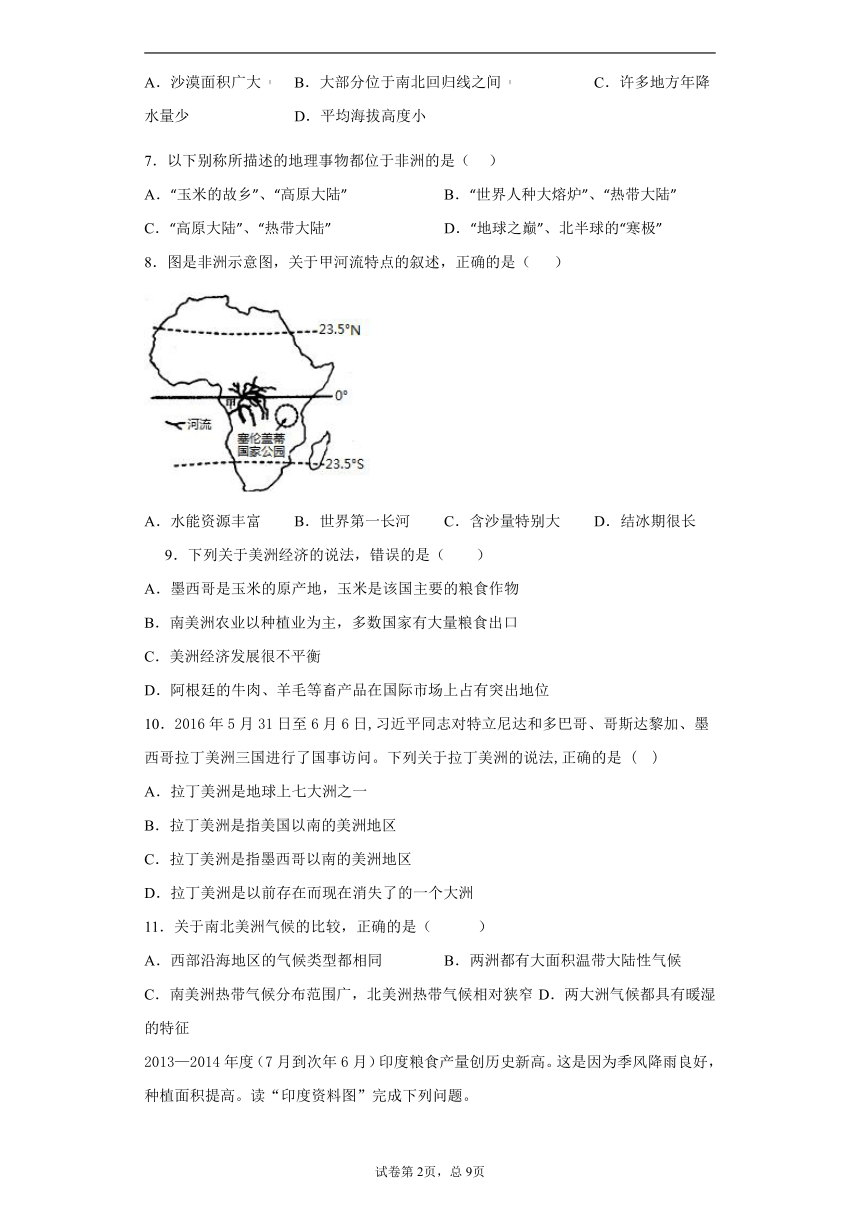 A．沙漠面积广大 B．大部分位于南北回归线之间 C．许多地方年降
水量少 D．平均海拔高度小
7．以下别称所描述的地理事物都位于非洲的是（ ）
A．“玉米的故乡”、“高原大陆” B．“世界人种大熔炉”、“热带大陆”
C．“高原大陆”、“热带大陆” D．“地球之巅”、北半球的“寒极”
8．图是非洲示意图，关于甲河流特点的叙述，正确的是（ ）
23.5°N
0°
甲
河流
塞伦盖蒂
国家公园
23.5°S
A．水能资源丰富 B．世界第一长河 C．含沙量特别大 D．结冰期很长
9．下列关于美洲经济的说法，错误的是（ ）
A．墨西哥是玉米的原产地，玉米是该国主要的粮食作物
B．南美洲农业以种植业为主，多数国家有大量粮食出口
C．美洲经济发展很不平衡
D．阿根廷的牛肉、羊毛等畜产品在国际市场上占有突出地位
10．2016年5月31日至6月6日,习近平同志对特立尼达和多巴哥、哥斯达黎加、墨
西哥拉丁美洲三国进行了国事访问。下列关于拉丁美洲的说法,正确的是 ( )
A．拉丁美洲是地球上七大洲之一
B．拉丁美洲是指美国以南的美洲地区
C．拉丁美洲是指墨西哥以南的美洲地区
D．拉丁美洲是以前存在而现在消失了的一个大洲
11．关于南北美洲气候的比较，正确的是（ ）
A．西部沿海地区的气候类型都相同 B．两洲都有大面积温带大陆性气候
C．南美洲热带气候分布范围广，北美洲热带气候相对狭窄 D．两大洲气候都具有暖湿
的特征
2013—2014年度（7月到次年6月）印度粮食产量创历史新高。这是因为季风降雨良好，
种植面积提高。读“印度资料图”完成下列问题。
试卷第2页，总9页